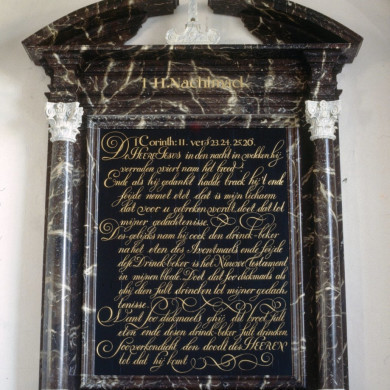 T H. Nachtmaek
I Corinth: II. vers 23. 24. 25. 26.
De HEERE JESUS in den nacht in welkken hij
verraden wiert nam het broot
Ende als hij gedankt hadde brack hij't ende
seijde neemet etet dat is mijn lichaem
dat voor u gebroken wordt, doet dat tot
mijner gedachtenisse.
Des-gelijks nam hij oock den drink-beker
na het eten des Avontmaels ende seijde
dese Drinck-beker is het Nieuwe Testament
in mijnen bloede. Doet dat soo dickmaels als
ghij dien sult drincken tot mijner gedach-
tenisse.
Want soo dickmaels ghij dit broot sult
eten ende desen drinck-beker sult drincken
soo verkondicht den doodt des HEEREN
tot dat hij komt